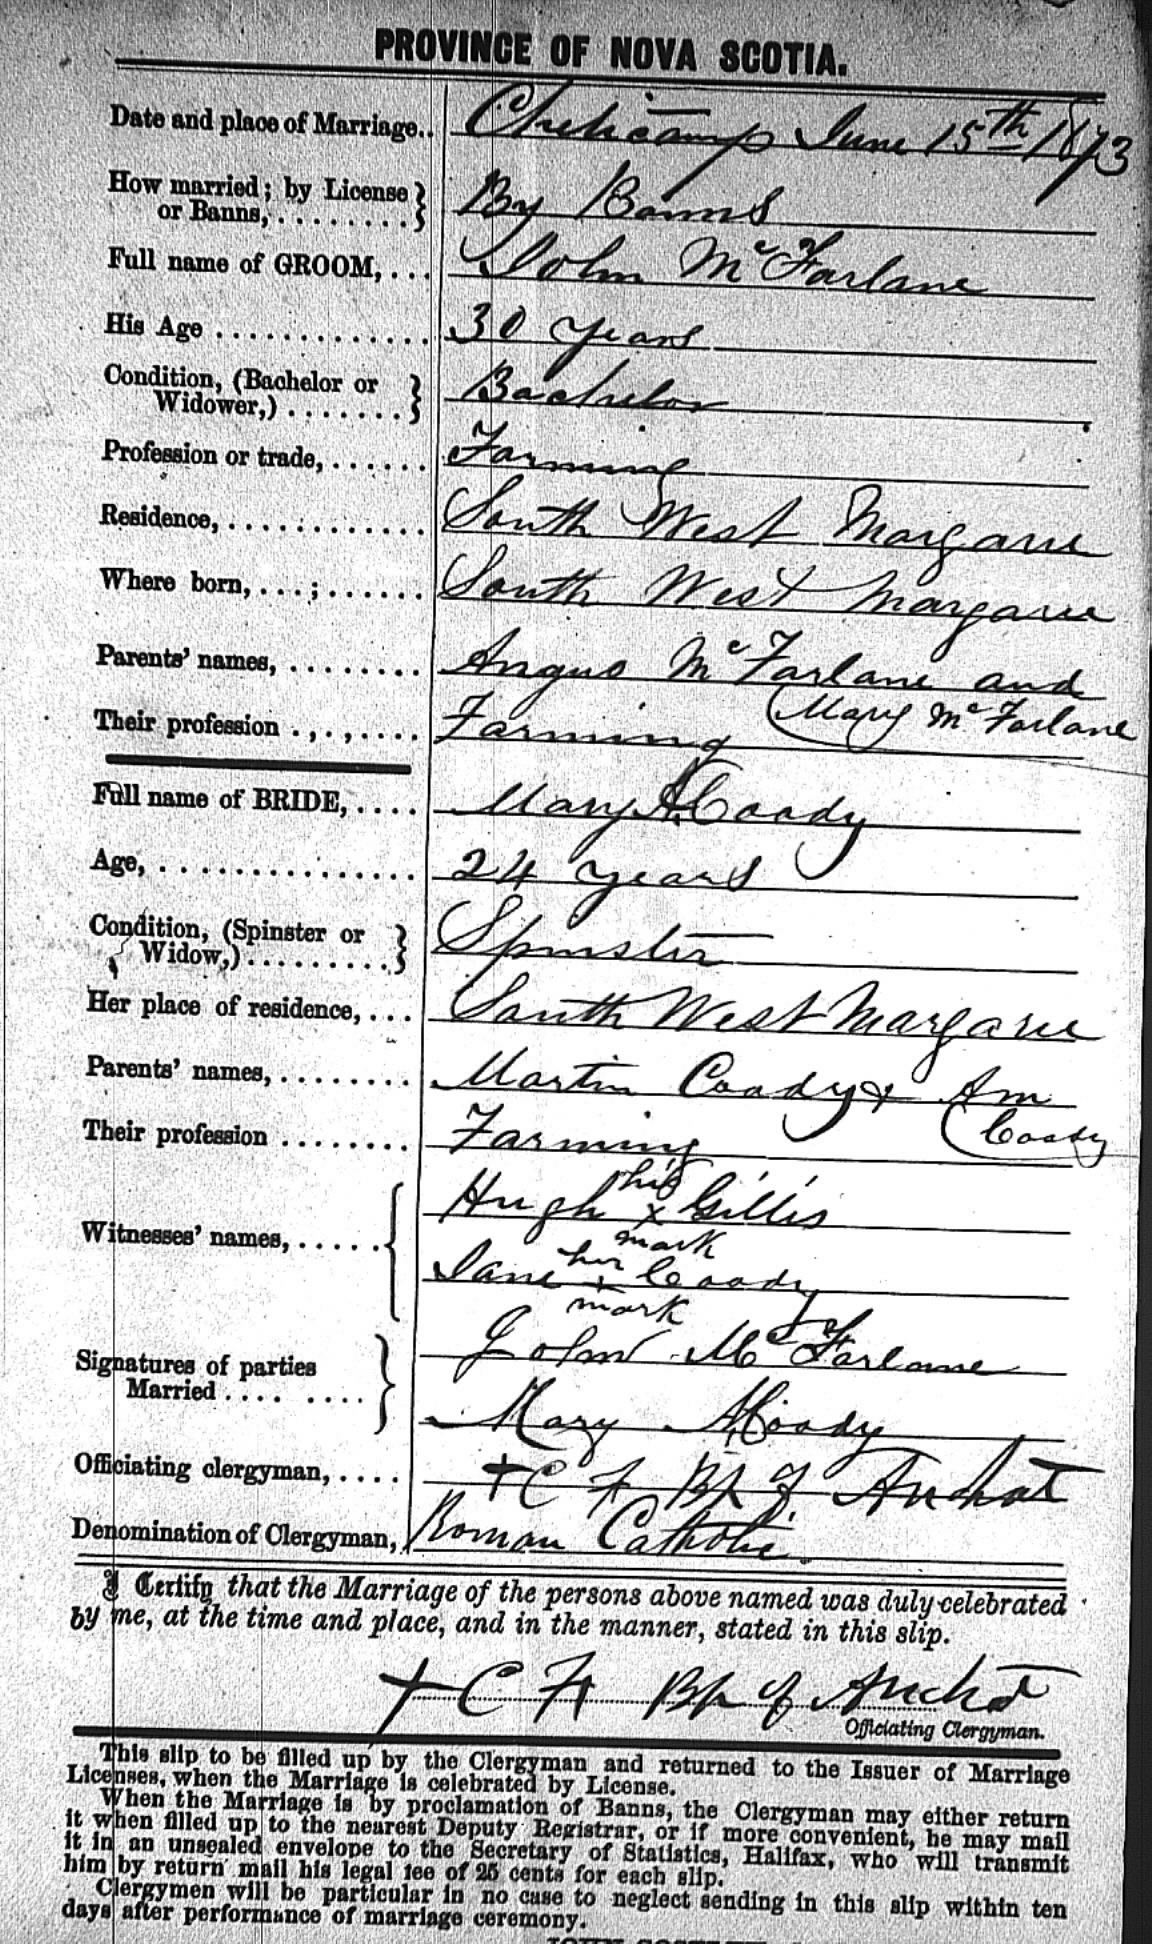 PROVINCE OF NOVA SCOTIA.
Date and place of Marriage.. Cheticamp June 15th 1873
How married; by License
or Banns,........ } By Banns
Full name of GROOM,... John McFarlane
His Age ............. 30 years
Condition, (Bachelor or
Widower,)....... } Bachelor
Profession or trade,...... Farming
Residence,............ South West Margaree
Where born,...;...... South West Margaree
Parents' names,........ Angus McFarlane and
(Mary McFarlane
Their profession .,.,.... Farming
Full name of BRIDE,.... Mary A Coady
Age,............... 24 years
Condition, (Spinster or
Widow,)......... } Spinster
Her place of residence,... South West Margaree
Parents' names,........ Martin Coady & Ann
(Coady
Their profession ........ Farming
his
Witnesses' names,..... { Hugh x Gillis
mark
her
Jane + Coady
mark
Signatures of parties
Married.... .... } John McFarlane
Mary A Coady
Officiating clergyman,.... + C F Bp of Arichat
Denomination of Clergyman, Roman Catholic
I Certify that the Marriage of the persons above named was duly celebrated
by me, at the time and place, and in the manner, stated in this slip.
+ C F Bp of Arichat
Officiating Clergyman.
This slip to be filled up by the Clergyman and returned to the Issuer of Marriage
Licenses, when the Marriage is celebrated by License.
When the Marriage is by proclamation of Banns, the Clergyman may either return
it when filled up to the nearest Deputy Registrar, or if more convenient, he may mail
it in an unsealed envelope to the Secretary of Statistics, Halifax, who will transmit
him by return mail his legal fee of 25 cents for each slip.
Clergymen will be particular in no case to neglect sending in this slip within ten
days after performance of marriage ceremony.